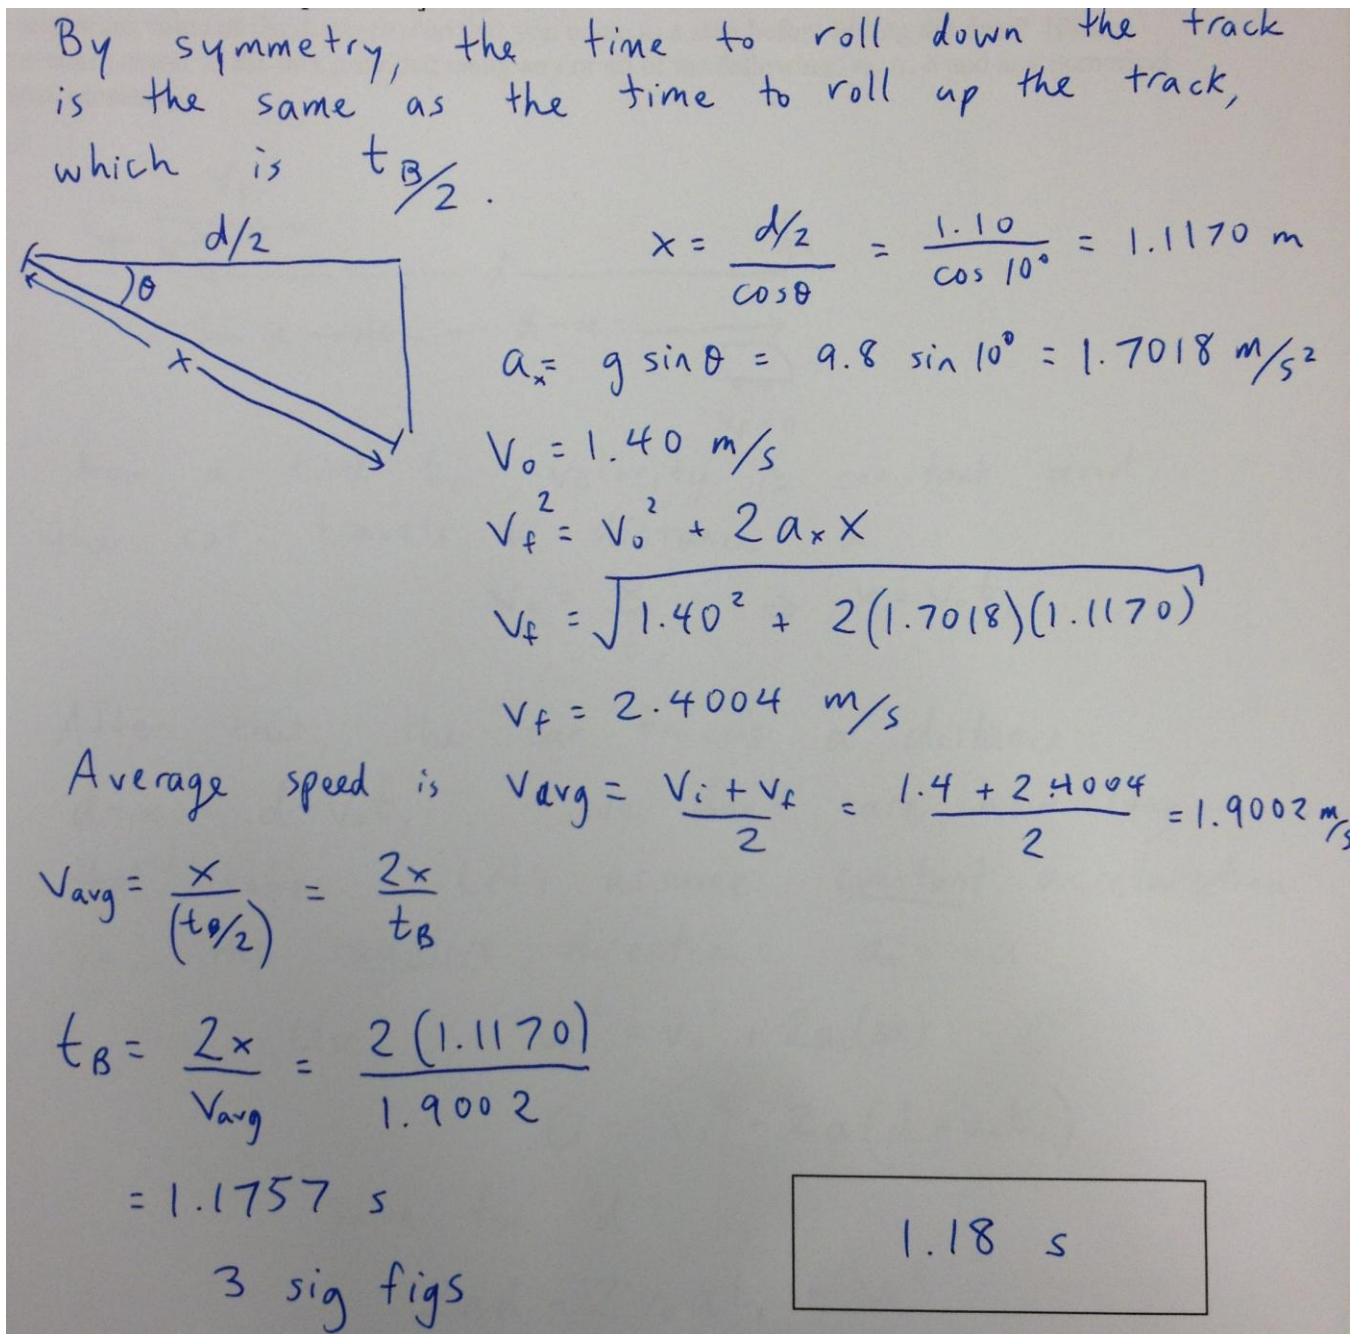 By symmetry, the time to roll down the track
is the same as the time to roll up the track,
which is t_B/2.
d/2
θ
x
x = (d/2)/cosθ = 1.10/cos 10° = 1.1170 m
a_x = g sin θ = 9.8 sin 10° = 1.7018 m/s²
V_o = 1.40 m/s
V_f² = V_o² + 2 a_x x
V_f = √(1.40² + 2(1.7018)(1.1170))
V_f = 2.4004 m/s
Average speed is V_avg = (V_i + V_f)/2 = (1.4 + 2.4004)/2 = 1.9002 m/s
V_avg = x/(t_B/2) = 2x/t_B
t_B = 2x/V_avg = 2(1.1170)/1.9002
= 1.1757 s
3 sig figs
1.18 s